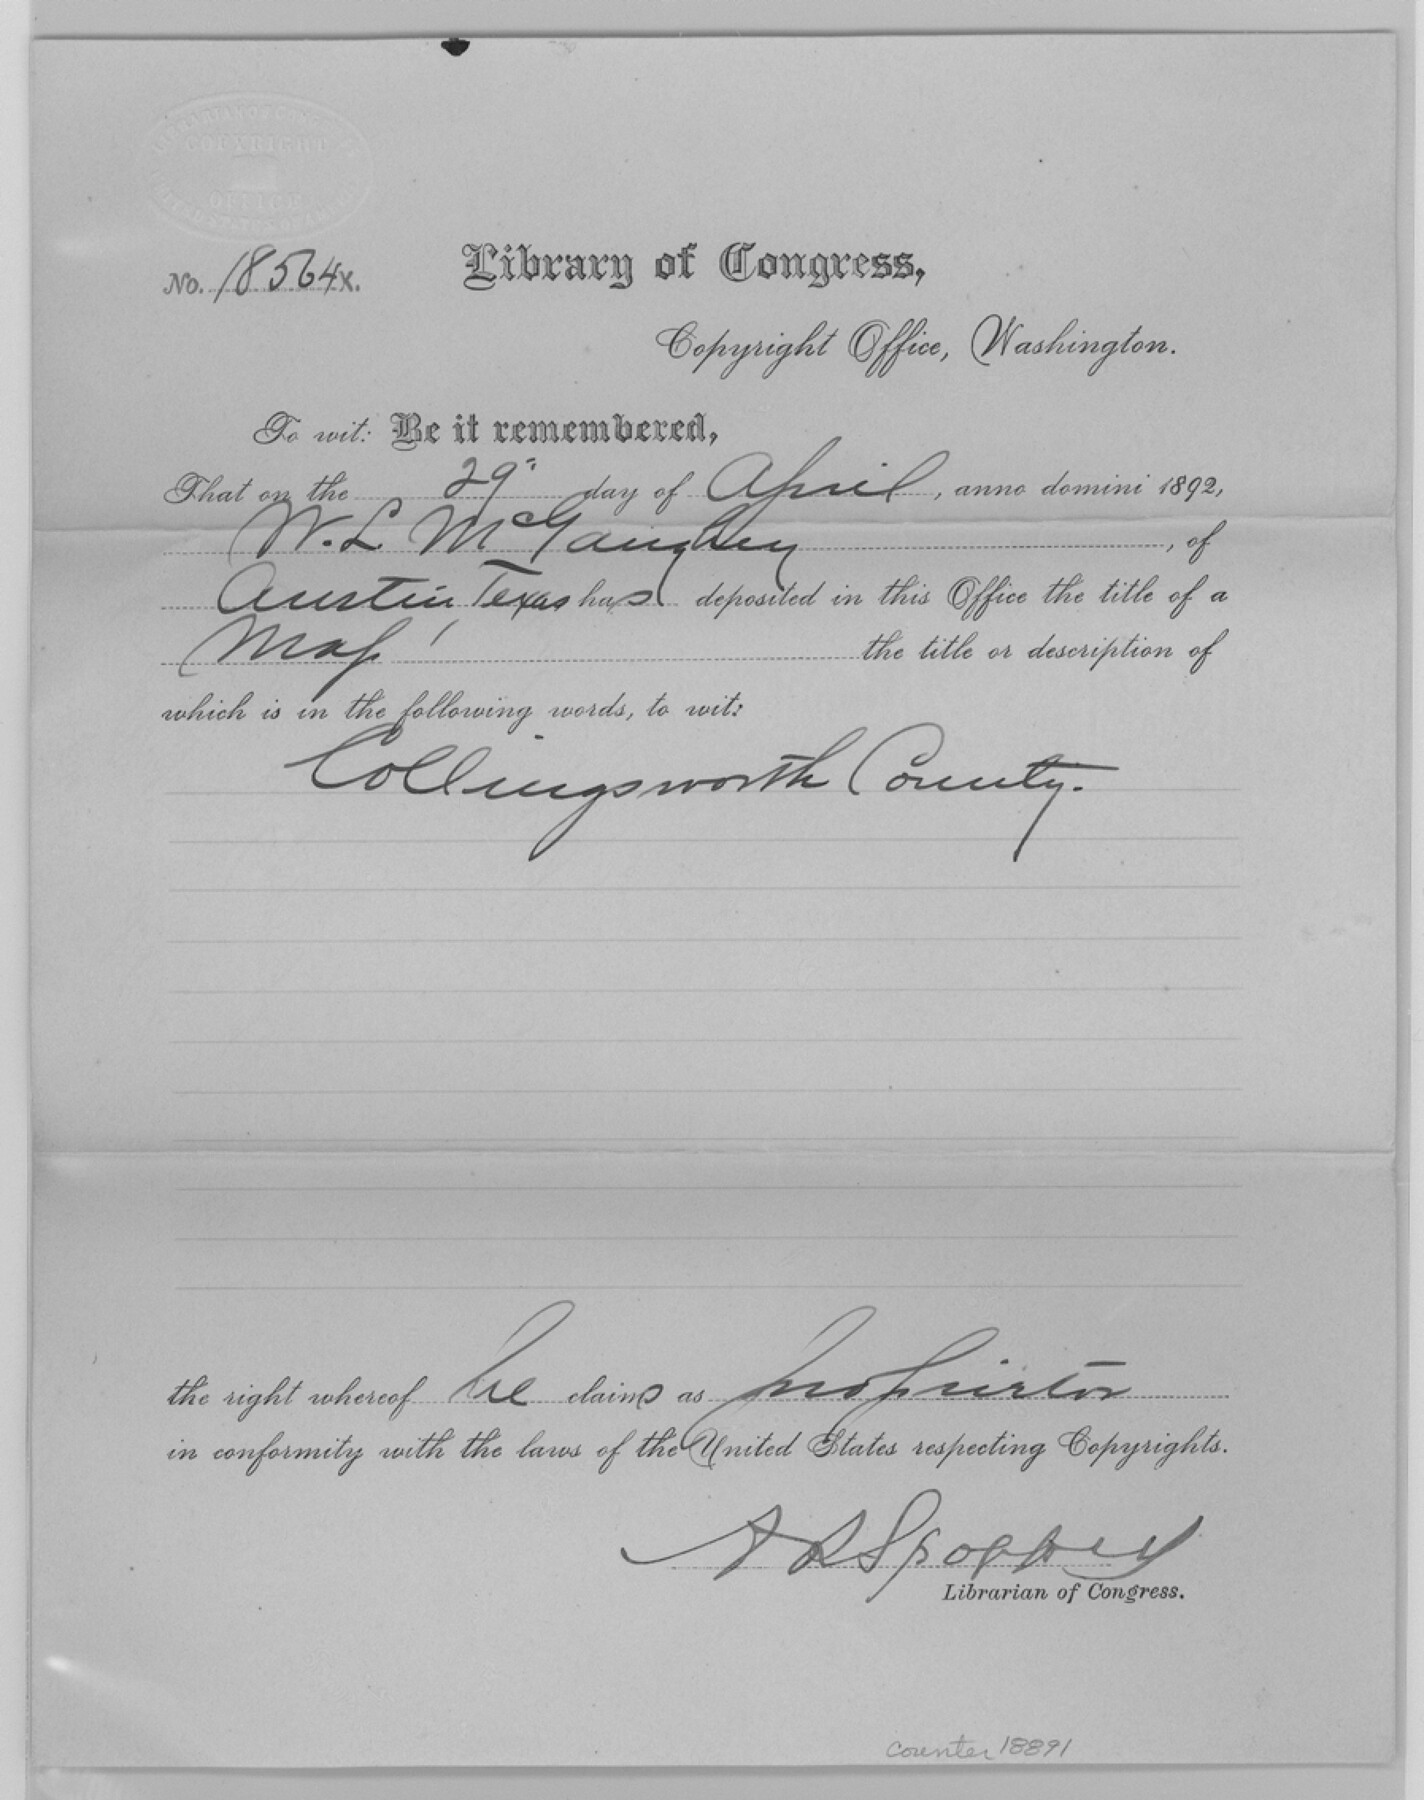 LIBRARIAN OF CONGRESS
COPYRIGHT
OFFICE
UNITED STATES OF AMERICA
No. 18564X.
Library of Congress,
Copyright Office, Washington.
To wit: Be it remembered,
That on the 29" day of April, anno domini 1892,
W. L McGaughey, of
Austin, Texas has deposited in this Office the title of a
Map, the title or description of
which is in the following words, to wit:
Collingsworth County.
the right whereof he claims as proprietor
in conformity with the laws of the United States respecting Copyrights.
A R Spofford
Librarian of Congress.
counter 18891